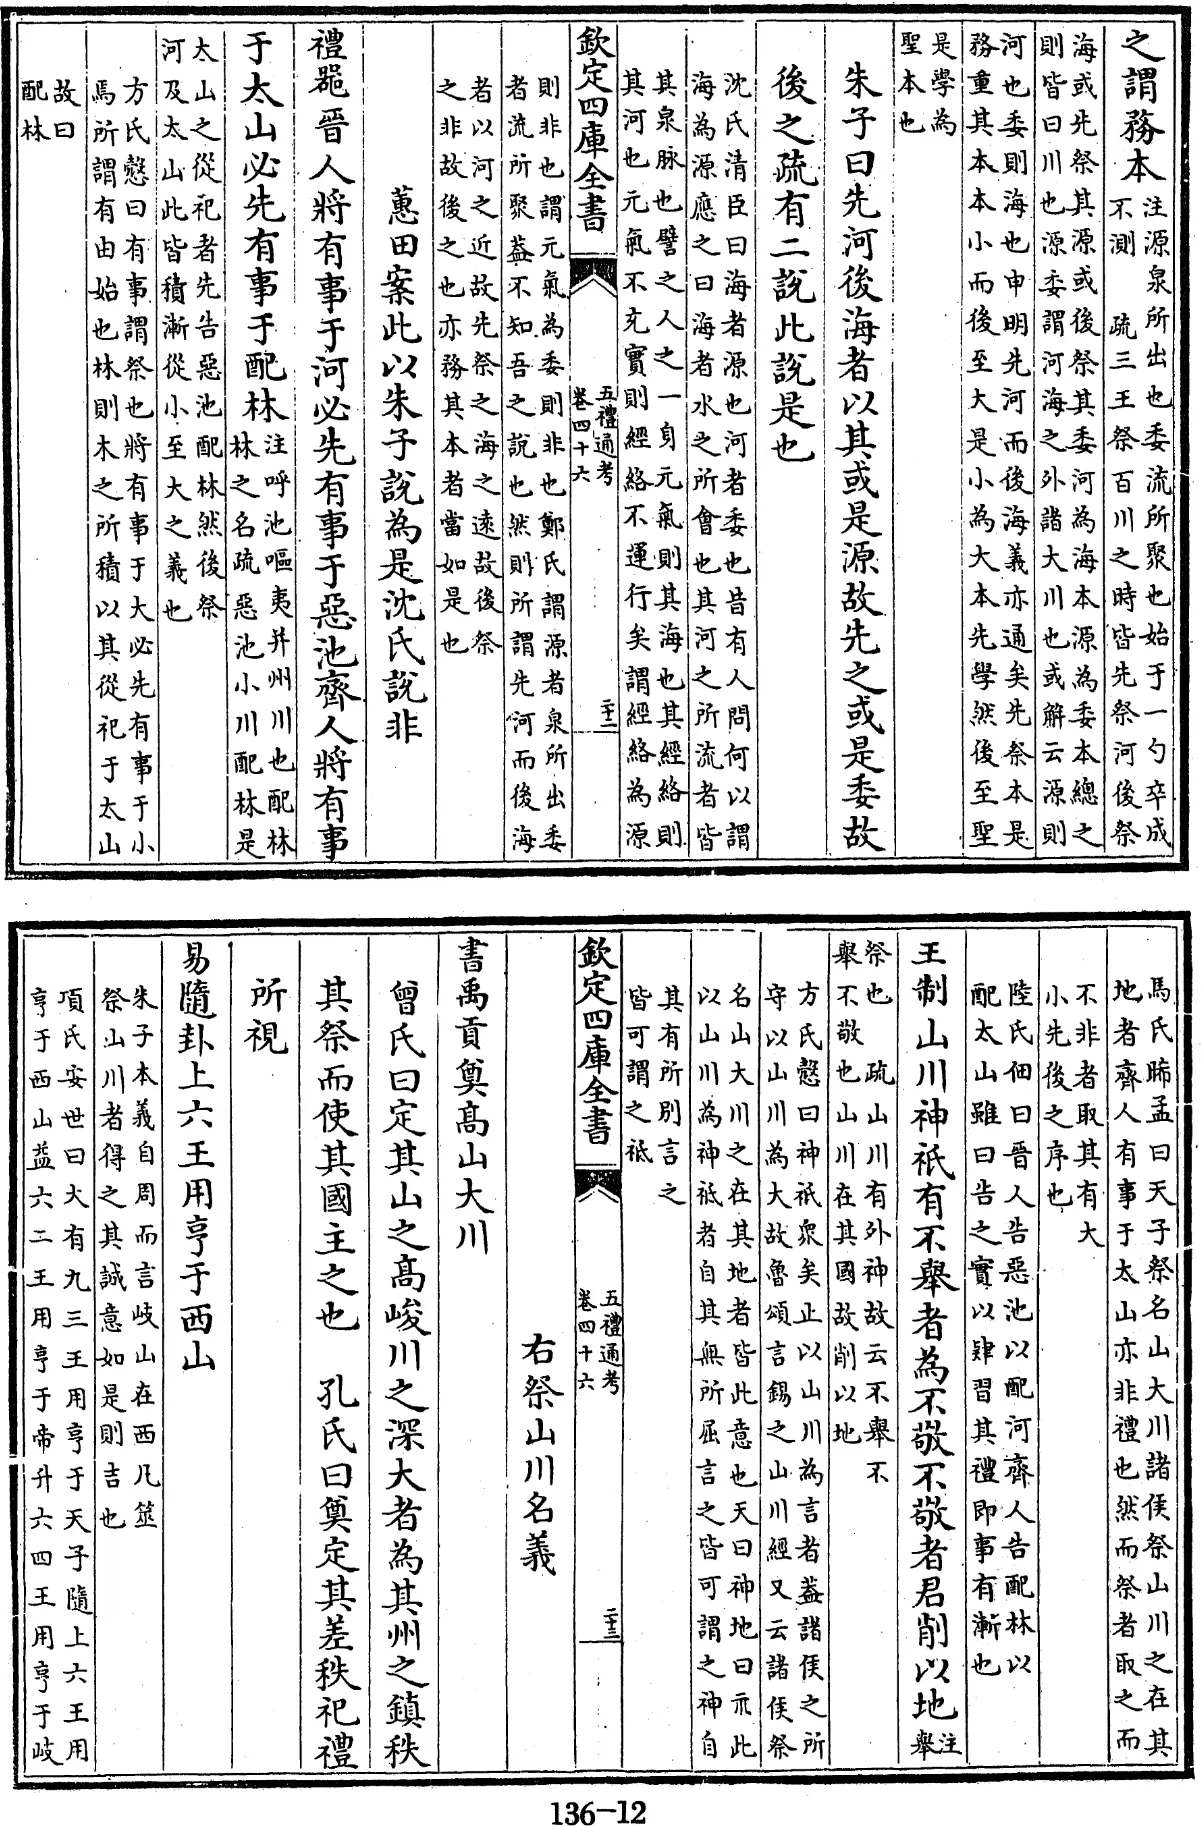 之謂務本注源泉所出也委流所聚也始于一勺卒成
不測　疏三王祭百川之時皆先祭河後祭
海或先祭其源或後祭其委河為海本源為委本總之
則皆曰川也源委謂河海之外諸大川也或解云源則
河也委則海也申明先河而後海義亦通矣先祭本是
務重其本本小而後至大是小為大本先學然後至聖
是學為
聖本也
朱子曰先河後海者以其或是源故先之或是委故
後之疏有二說此說是也
沈氏清臣曰海者源也河者委也昔有人問何以謂
海為源應之曰海者水之所會也其河之所流者皆
其泉脉也譬之人之一身元氣則其海也其經絡則
其河也元氣不充實則經絡不運行矣謂經絡為源
欽定四庫全書
五禮通考
卷四十六
二十二
則非也謂元氣為委則非也鄭氏謂源者泉所出委
者流所聚葢不知吾之說也然則所謂先河而後海
者以河之近故先祭之海之遠故後祭
之非故後之也亦務其本者當如是也
蕙田案此以朱子說為是沈氏說非
禮器晉人將有事于河必先有事于惡池齊人將有事
于太山必先有事于配林注呼池嘔夷并州川也配林
林之名疏惡池小川配林是
太山之從祀者先告惡池配林然後祭
河及太山此皆積漸從小至大之義也
方氏慤曰有事謂祭也將有事于大必先有事于小
焉所謂有由始也林則木之所積以其從祀于太山
故曰
配林
馬氏晞孟曰天子祭名山大川諸侯祭山川之在其
地者齊人有事于太山亦非禮也然而祭者取之而
不非者取其有大
小先後之序也
陸氏佃曰晉人告惡池以配河齊人告配林以
配太山雖曰告之實以肄習其禮即事有漸也
王制山川神祇有不舉者為不敬不敬者君削以地注
舉
祭也　疏山川有外神故云不舉不
舉不敬也山川在其國故削以地
方氏慤曰神祇衆矣止以山川為言者葢諸侯之所
守以山川為大故魯頌言錫之山川經又云諸侯祭
名山大川之在其地者皆此意也天曰神地曰示此
以山川為神祇者自其無所屈言之皆可謂之神自
其有所別言之
皆可謂之祇
欽定四庫全書
五禮通考
卷四十六
二十三
右祭山川名義
書禹貢奠高山大川
曾氏曰定其山之高峻川之深大者為其州之鎮秩
其祭而使其國主之也　孔氏曰奠定其差秩祀禮
所視
易隨卦上六王用亨于西山
朱子本義自周而言岐山在西凡筮
祭山川者得之其誠意如是則吉也
項氏安世曰大有九三王用亨于天子隨上六王用
亨于西山益六二王用亨于帝升六四王用亨于岐
136-12